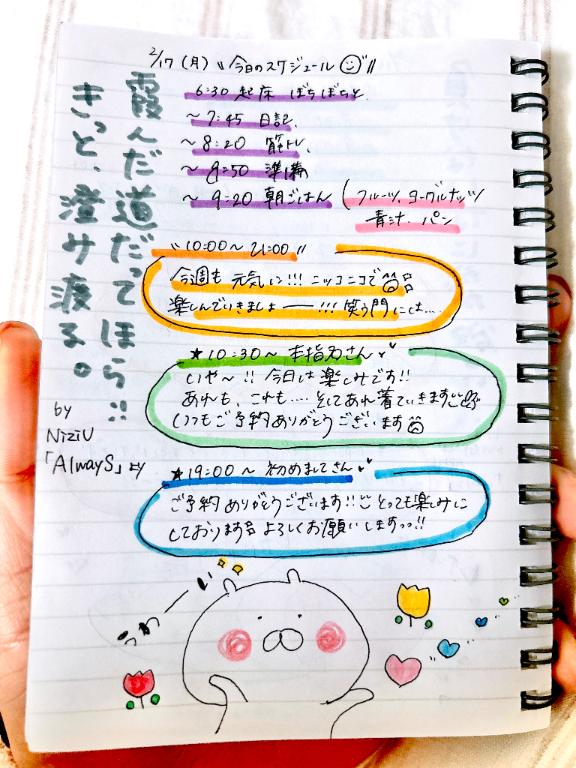 2/17（月）〝今日のスケジュール〟
6:30 起床 ぼちぼちと
〜7:45 日記
〜8:20 筋トレ
〜8:50 準備
〜9:20 朝ごはん（フルーツ、ヨーグルナッツ
青汁、パン
〝10:00〜21:00〟
今週も元気に!!!ニッコニコで
楽しんでいきましょーーー!!!笑う門には…
★10:30〜本指名さん
いや〜!!今日は楽しみです!!
あれも、これも…そしてあれ着ていきます
いつもご予約ありがとうございます
★19:00〜初めましてさん
ご予約ありがとうございます!!とっても楽しみに
しております よろしくお願いしますっっ!!
霞んだ道だってほら!!
きっと、澄み渡る。
by
NiziU
「AlwayS」より
うわーい